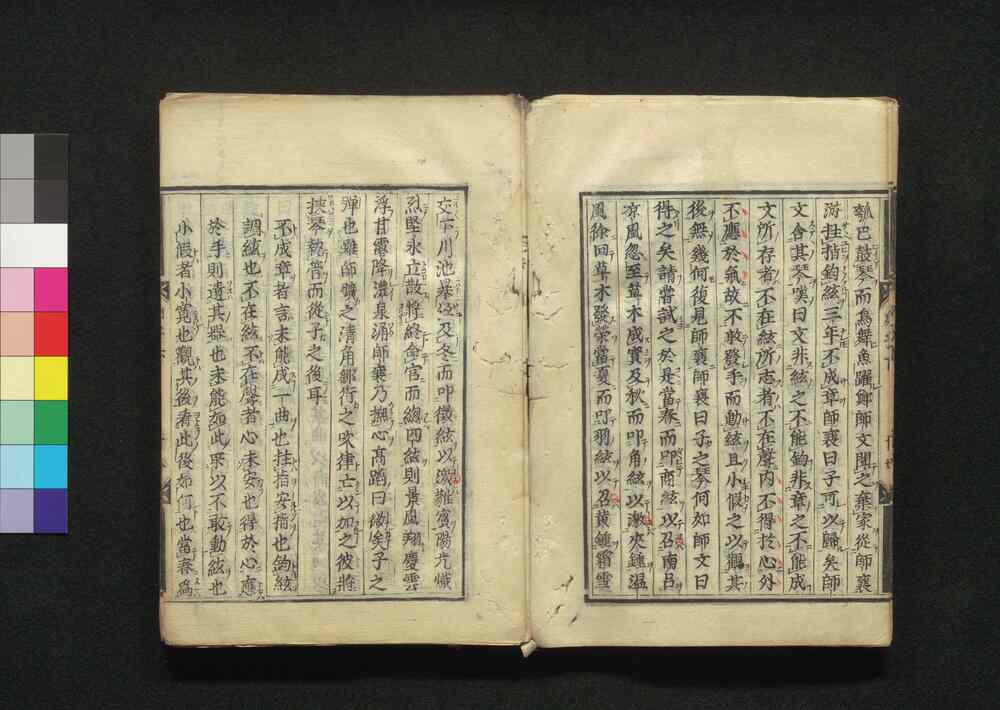 瓠巴鼓琴而鳥舞魚躍鄭師文聞之棄家從師襄
游拄指鈞絃三年不成章師襄曰子可以歸矣師
文舍其琴嘆曰文非絃之不能鈞非章之不能成
文所存者不在絃所志者不在聲内不得於心外
不應於氣故不敢發手而動絃且小假之以觀其
後無幾何復見師襄師襄曰子之琴何如師文曰
得之矣請嘗試之於是當春而叩商絃以召南呂
凉風忽至草木成實及秋而叩角絃以激夾鐘温
風徐回草木發榮當夏而叩羽絃以召黄鐘霜雪
交下川池暴沍及冬而叩徵絃以激蕤賓陽光熾
烈堅氷立散將終命宮而緫四絃則景風翔慶雲
浮甘露降澧泉涌師襄乃撫心高蹈曰微矣子之
彈也雖師曠之清角鄒衍之吹律亡以加之彼將
挾琴執管而從子之後耳
不成章者言未能成一曲也拄指安指也鈞絃
調絃也不在絃不在聲者心未安也得於心應
於手則遺其器也未能如此所以不敢動絃也
小假者小寛也觀其後看此後如何也當春爲